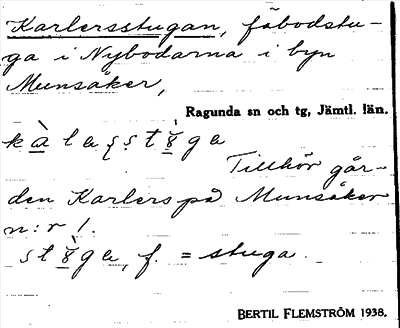 Karlersstugan, fäbodstu-
ga i Nybodarna i byn
Munsåker,
Ragunda sn och tg, Jämtl. län.
Tillhör går-
den Karlers på Munsåker
n:r 1.
f. = stuga.
BERTIL FLEMSTRÖM 1938.